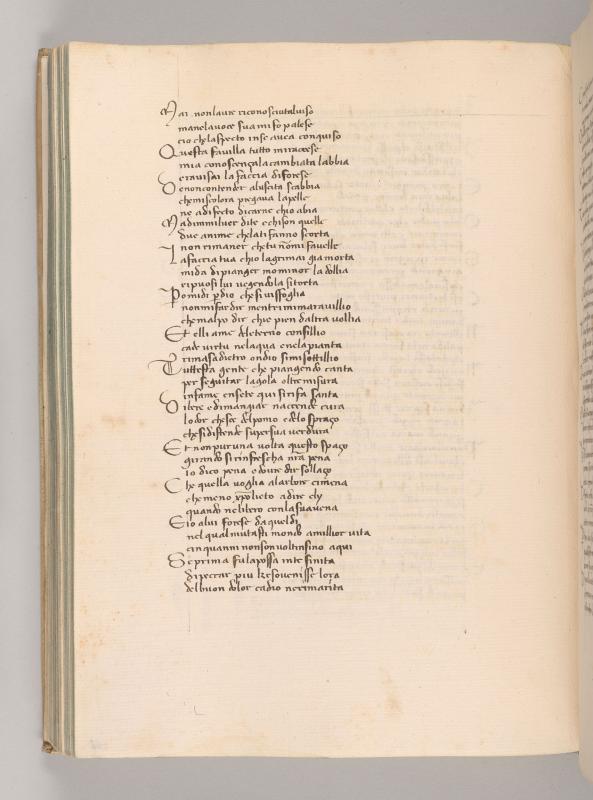 Mai nonlaure riconosciutaluiso
manelauoce sua mi fo palese
cio che laspecto inse auea conquiso
Questa fauilla tutto miraccese
mia conoscença la cambiata labbia
Erauisai la faccia diforese
Denoncontender alascita scabbia
chemiscolora pregaua lapelle
ne adifecto dicarne chio abia
Madimmiluer dite echison quelle
due anime chelati fanno scorta
non rimaner chetu nõmi fauelle
La faccia tua chio lagrimai gia morta
mida dipianger mo minor la dollia
rispuosi lui uegendola si torta
Pomidi p dio chesiuisfoglia
nonmifardir mentrimmarauillio
chemalpo dir chie pien daltra uollia
Et elli ame deleterno consillio
cade uirtu nelaqua enela pianta
rimasa dietro ondio simisottillio
Tuttesta gente che piangendo canta
per seguitar lagola oltremisura
infame ensete qui sirifa santa
Dibere edimangiar naccende cura
lodor chesce delpomo edelo spraço
chesidistende supersua uerdura
Et non pur una uolta questo spaço
girando si rinfrescha nr̃a pena
io dico pena edoure dir sollaço
Che quella uoglia alarbore cimena
chemeno xp̃o lieto adire ely
quando neliberò conlasuauena
Eio alui forese daqueldi
nel qual mutasti mondo amillior uita
cinquanni nonson uolti infino aqui
Se prima fu lapossa inte finita
dipeccar piu che souenisse lora
delbuon dolor cadio nerimarita